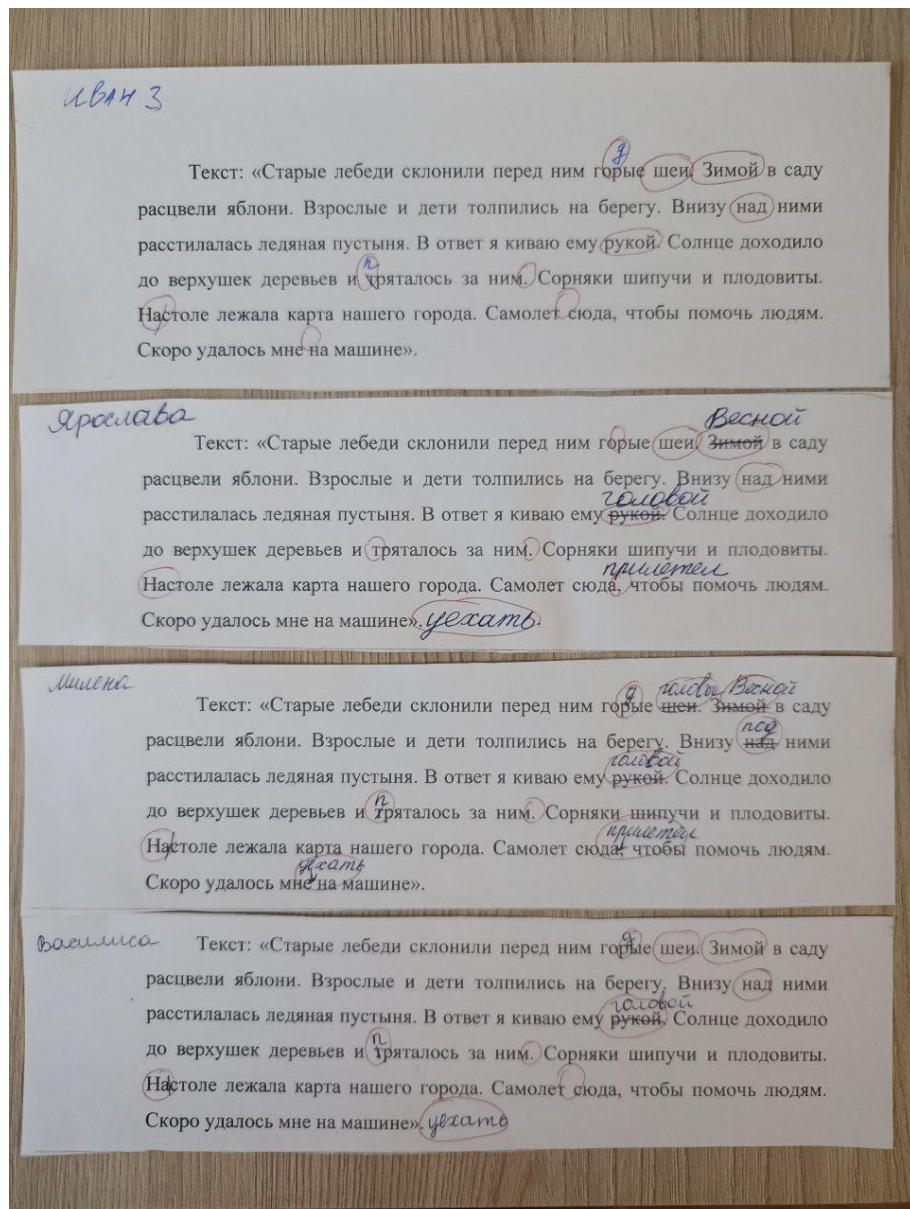 Иван З
д
Текст: «Старые лебеди склонили перед ним горые шеи. Зимой в саду
расцвели яблони. Взрослые и дети толпились на берегу. Внизу над ними
расстилалась ледяная пустыня. В ответ я киваю ему рукой. Солнце доходило
п
до верхушек деревьев и тряталось за ним. Сорняки шипучи и плодовиты.
Настоле лежала карта нашего города. Самолет сюда, чтобы помочь людям.
Скоро удалось мне на машине».
Ярослава
Весной
Текст: «Старые лебеди склонили перед ним горые шеи. Зимой в саду
расцвели яблони. Взрослые и дети толпились на берегу. Внизу над ними
головой
расстилалась ледяная пустыня. В ответ я киваю ему рукой. Солнце доходило
до верхушек деревьев и тряталось за ним. Сорняки шипучи и плодовиты.
прилетел
Настоле лежала карта нашего города. Самолет сюда, чтобы помочь людям.
Скоро удалось мне на машине». уехать.
Милена
д головы Весной
Текст: «Старые лебеди склонили перед ним горые шеи. Зимой в саду
под
расцвели яблони. Взрослые и дети толпились на берегу. Внизу над ними
головой
расстилалась ледяная пустыня. В ответ я киваю ему рукой. Солнце доходило
п
до верхушек деревьев и тряталось за ним. Сорняки шипучи и плодовиты.
прилетел
Настоле лежала карта нашего города. Самолет сюда, чтобы помочь людям.
уехать
Скоро удалось мне на машине».
Василиса
д
Текст: «Старые лебеди склонили перед ним горые шеи. Зимой в саду
расцвели яблони. Взрослые и дети толпились на берегу. Внизу над ними
головой
расстилалась ледяная пустыня. В ответ я киваю ему рукой. Солнце доходило
п
до верхушек деревьев и тряталось за ним. Сорняки шипучи и плодовиты.
Настоле лежала карта нашего города. Самолет сюда, чтобы помочь людям.
Скоро удалось мне на машине». уехать